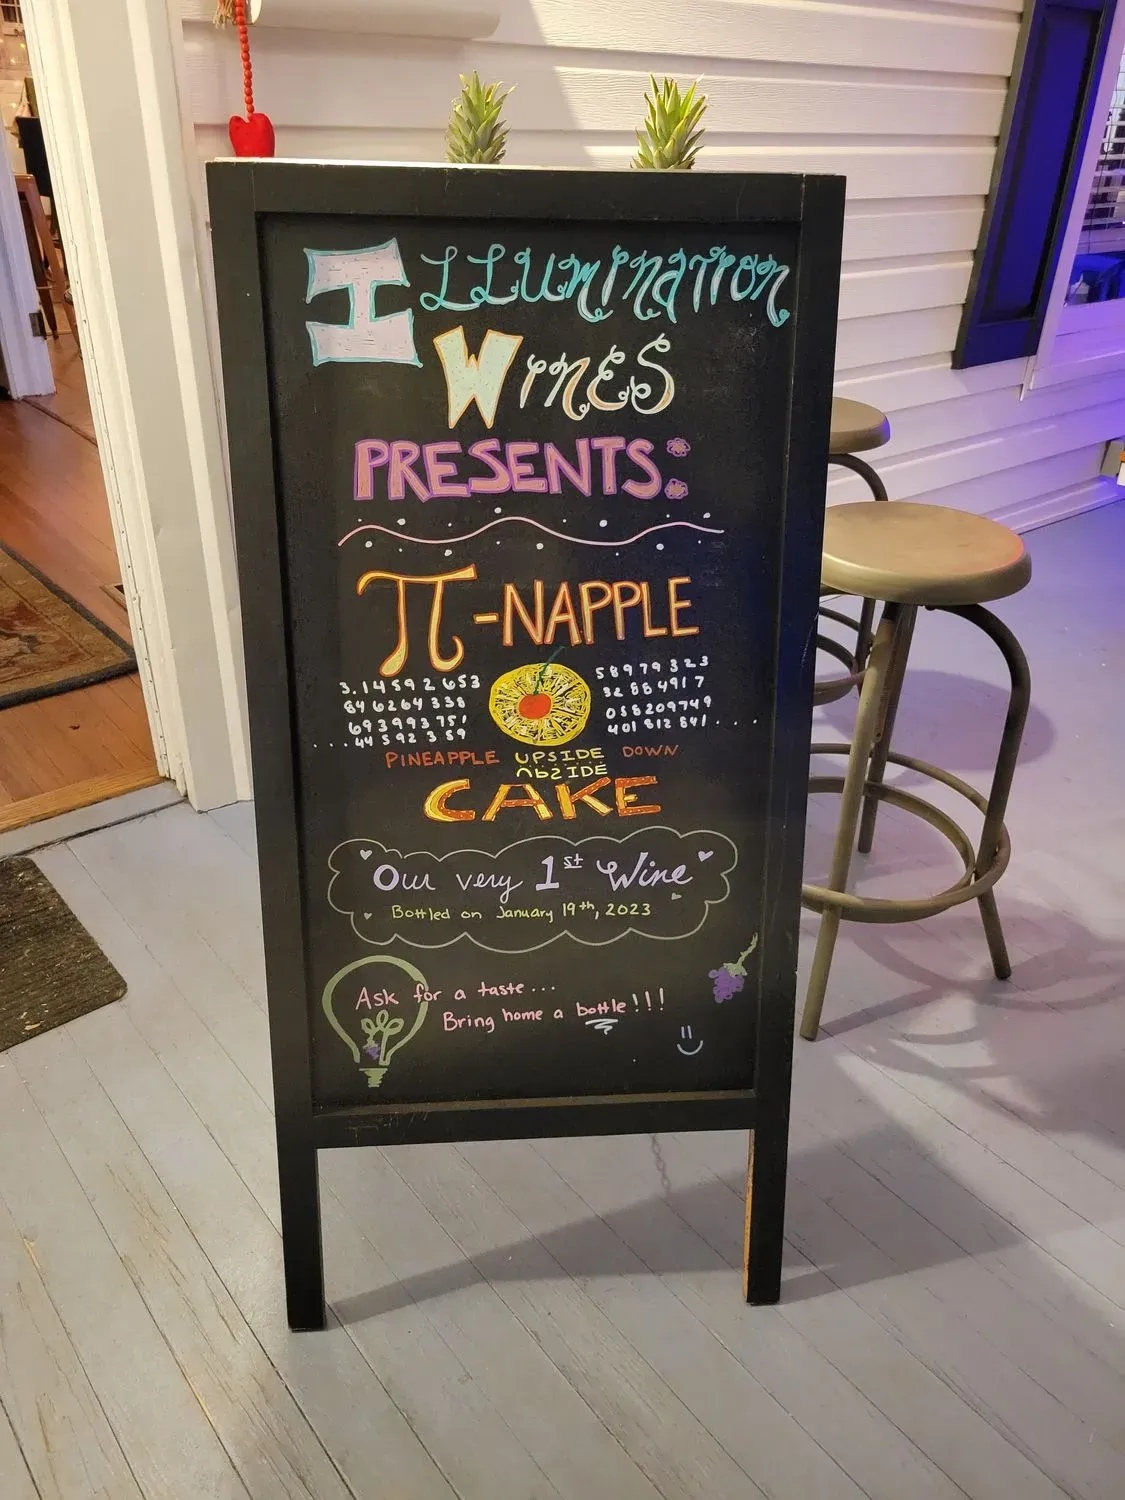 ILLUMINATION
WINES
PRESENTS:
π-NAPPLE
3.14592653 58979323
846264338 32884917
693993751 058209749
...44592359 401812841....
PINEAPPLE UPSIDE DOWN
UPSIDE
CAKE
Our very 1st Wine
Bottled on January 19th, 2023
Ask for a taste...
Bring home a bottle!!!